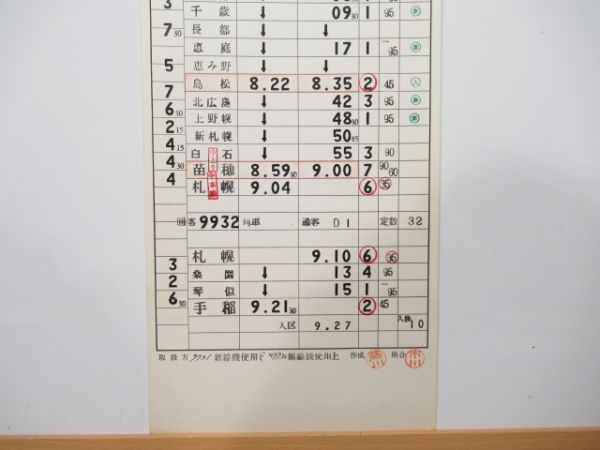 3
千歳 ↓ 09 30 1 95
7 30
長都 ↓ ↓
恵庭 17 1 95
5
恵み野 ↓ ↓
島松 8.22 8.35 2 45 入
7
北広島 ↓ 42 3 95
6 30
上野幌 ↓ 48 30 1 95
2 15
新札幌 50 45
4 15
白石 ↓ 55 3 90
4 30
苗穂 8.59 30 9.00 7 90 60
4
札幌 9.04 6 35
回客 9932 列車 通客 D1 定数 32
札幌 9.10 6 95
3
桑園 ↓ 13 4 95
2
琴似 ↓ 15 1 95
6 30
手稲 9.21 30 2 45
入区 9.27 入換 10
取扱方 作成 照合